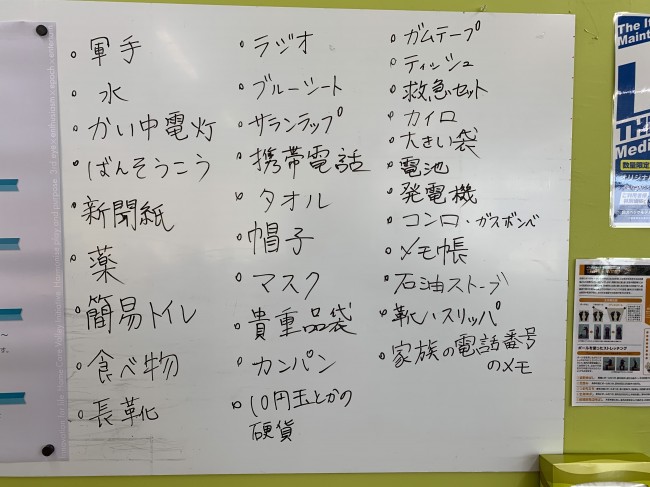 ・軍手
・水
・かい中電灯
・ばんそうこう
・新聞紙
・薬
・簡易トイレ
・食べ物
・長靴
・ラジオ
・ブルーシート
・サランラップ
・携帯電話
・タオル
・帽子
・マスク
・貴重品袋
・カンパン
・10円玉とかの
硬貨
・ガムテープ
・ティッシュ
・救急セット
・カイロ
・大きい袋
・電池
・発電機
・コンロ・ガスボンベ
・メモ帳
・石油ストーブ
・靴、スリッパ
・家族の電話番号
のメモ
The It
Maint
Medi
数量限定
オリジナ